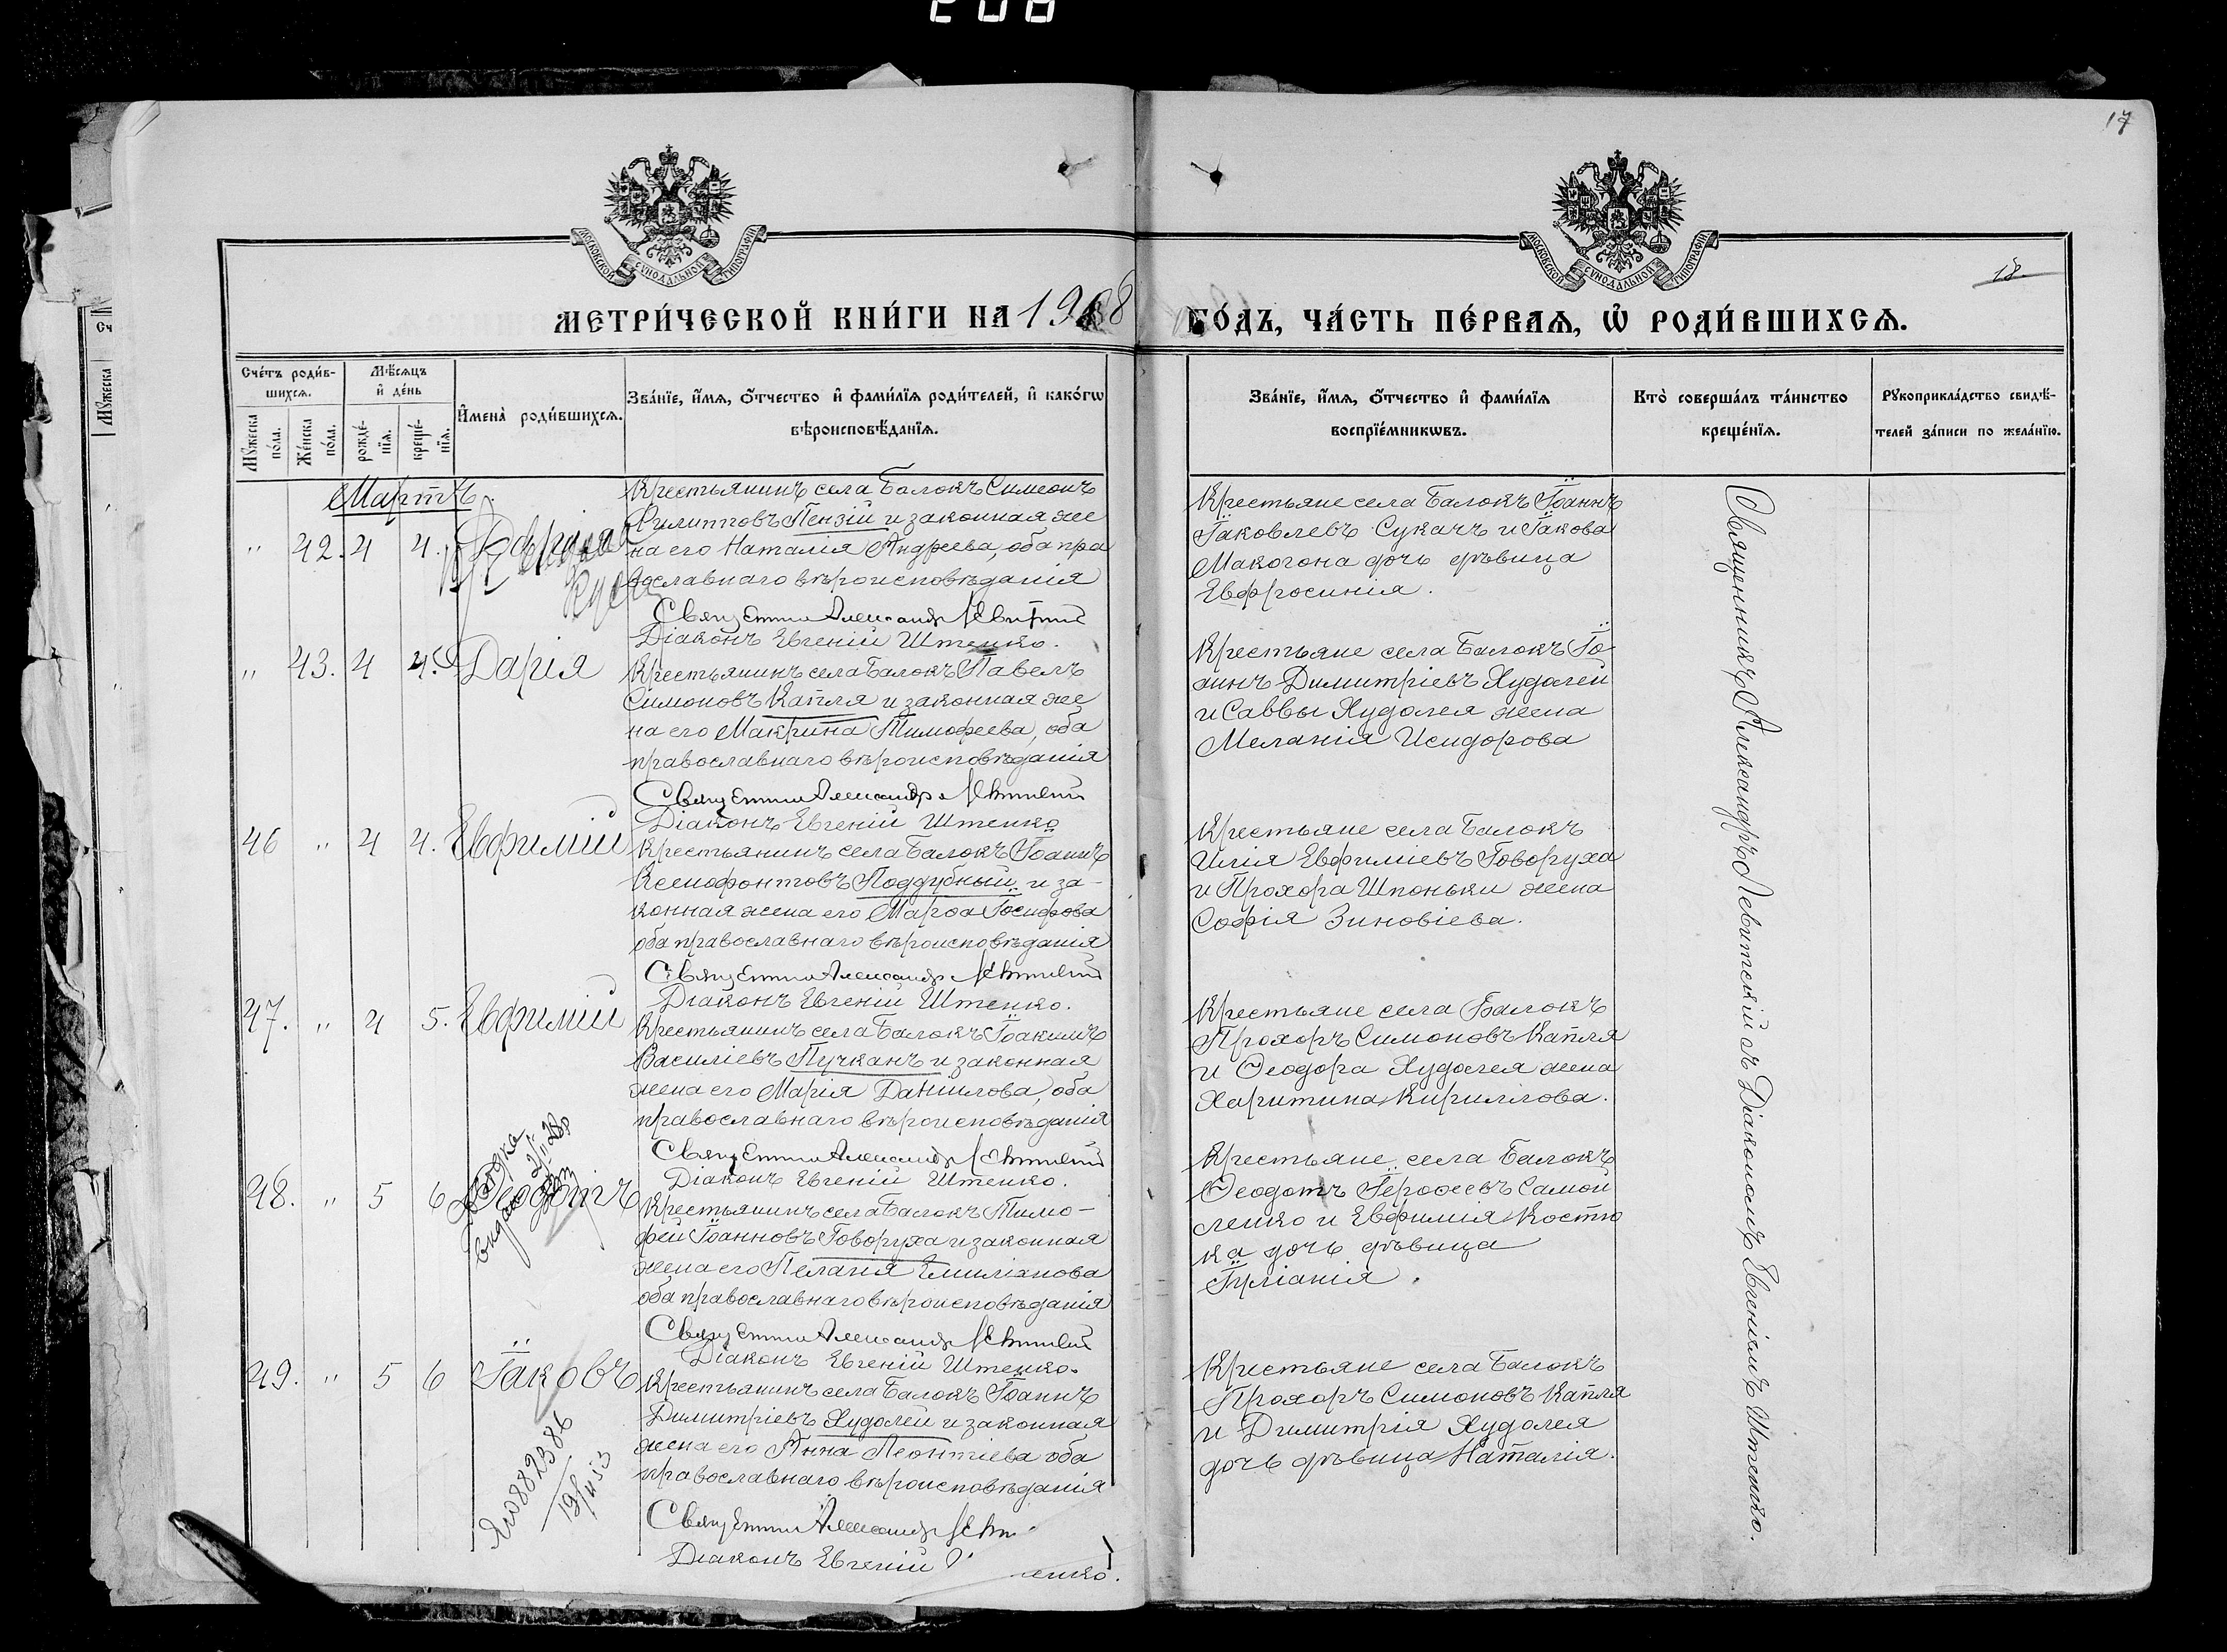 208
17
18
МОСКОВСКОЙ СѴНОДАЛЬНОЙ ТИПОГРАФІИ
МОСКОВСКОЙ СѴНОДАЛЬНОЙ ТИПОГРАФІИ
МЕТРИ́ЧЕСКОЙ КНИ́ГИ НА 1908
ГО́ДЪ, ЧА́СТЬ ПЕ́РВАѦ, Ѡ҆ РОДИ́ВШИХСѦ.
Сче́тъ роди́в-
шихсѧ.
Мꙋ́жеска по́ла.
Же́нска по́ла.
Мѣ́сѧцъ
и҆ де́нь
рожде́-
нїѧ.
креще́-
нїѧ.
И҆мена̀ роди́вшихсѧ.
Зва́нїе, и҆́мѧ, ѻ҆́тчество и҆ фами́лїѧ роди́телей, и҆ како́гѡ
вѣроисповѣ́данїѧ.
Зва́нїе, и҆́мѧ, ѻ҆́тчество и҆ фами́лїѧ
воспрїе́мникѡвъ.
Кто̀ соверша́лъ та́инство
креще́нїѧ.
Рꙋкоприкла́дство свидѣ́-
телей за́писи по жела́нїю.
Мартъ.
" 42. 4 4.
Крестьянинъ села Балокъ Симеонъ
Филипповъ Пензій и законная же
на его Наталія Андреева, оба пра
вославнаго вѣроисповѣданія
Священникъ Александръ Левитскій
Діаконъ Евгеній Штенко.
Крестьяне села Балокъ Іоаннъ
Іаковлевъ Сукачъ и Іакова
Макогона дочь дѣвица
Евфросинія.
" 43. 4 4. Дарія
Крестьянинъ села Балокъ Павелъ
Симоновъ Капля и законная же
на его Макрина Тимофеева, оба
православнаго вѣроисповѣданія
Священникъ Александръ Левитскій
Діаконъ Евгеній Штенко
Крестьяне села Балокъ Іо
аннъ Димитріевъ Худолей
и Саввы Худолея жена
Меланія Исидорова
46 " 4 4. Евфимій
Крестьянинъ села Балокъ Іоаннъ
Ксенофонтовъ Поддубный и за-
конная жена его Марфа Іосифова
оба православнаго вѣроисповѣданія
Священникъ Александръ Левитскій
Діаконъ Евгеній Штенко.
Крестьяне села Балокъ
Илія Евфиміевъ Говоруха
и Прохора Шпоньки жена
Софія Зиновіева.
47. " 4 5. Евфимій
Крестьянинъ села Балокъ Іоакимъ
Василіевъ Пучканъ и законная
жена его Марія Даніилова, оба
православнаго вѣроисповѣданія
Священникъ Александръ Левитскій
Діаконъ Евгеній Штенко.
Крестьяне села Балокъ
Прохоръ Симоновъ Капля
и Ѳеодора Худолея жена
Харитина Кириллова.
48. " 5 6 Ѳеодотъ
Крестьянинъ села Балокъ Тимо-
фей Іоанновъ Говоруха и законная
жена его Пелагія Емиліанова
оба православнаго вѣроисповѣданія
Священникъ Александръ Левитскій
Діаконъ Евгеній Штенко.
Крестьяне села Балокъ
Ѳеодотъ Іероѳеевъ Самой
ленко и Евфимія Костю
ка дочь дѣвица
Іуліанія.
49. " 5 6 Іаковъ
Крестьянинъ села Балокъ Іоаннъ
Димитріевъ Худолей и законная
жена его Анна Леонтіева оба
православнаго вѣроисповѣданія
Священникъ Александръ
Діаконъ Евгеній
енко.
Крестьяне села Балокъ
Прохоръ Симоновъ Капля
и Димитрія Худолея
дочь дѣвица Наталія.
Священникъ Александръ Левитскій съ Діакономъ Евгеніемъ Штенко.